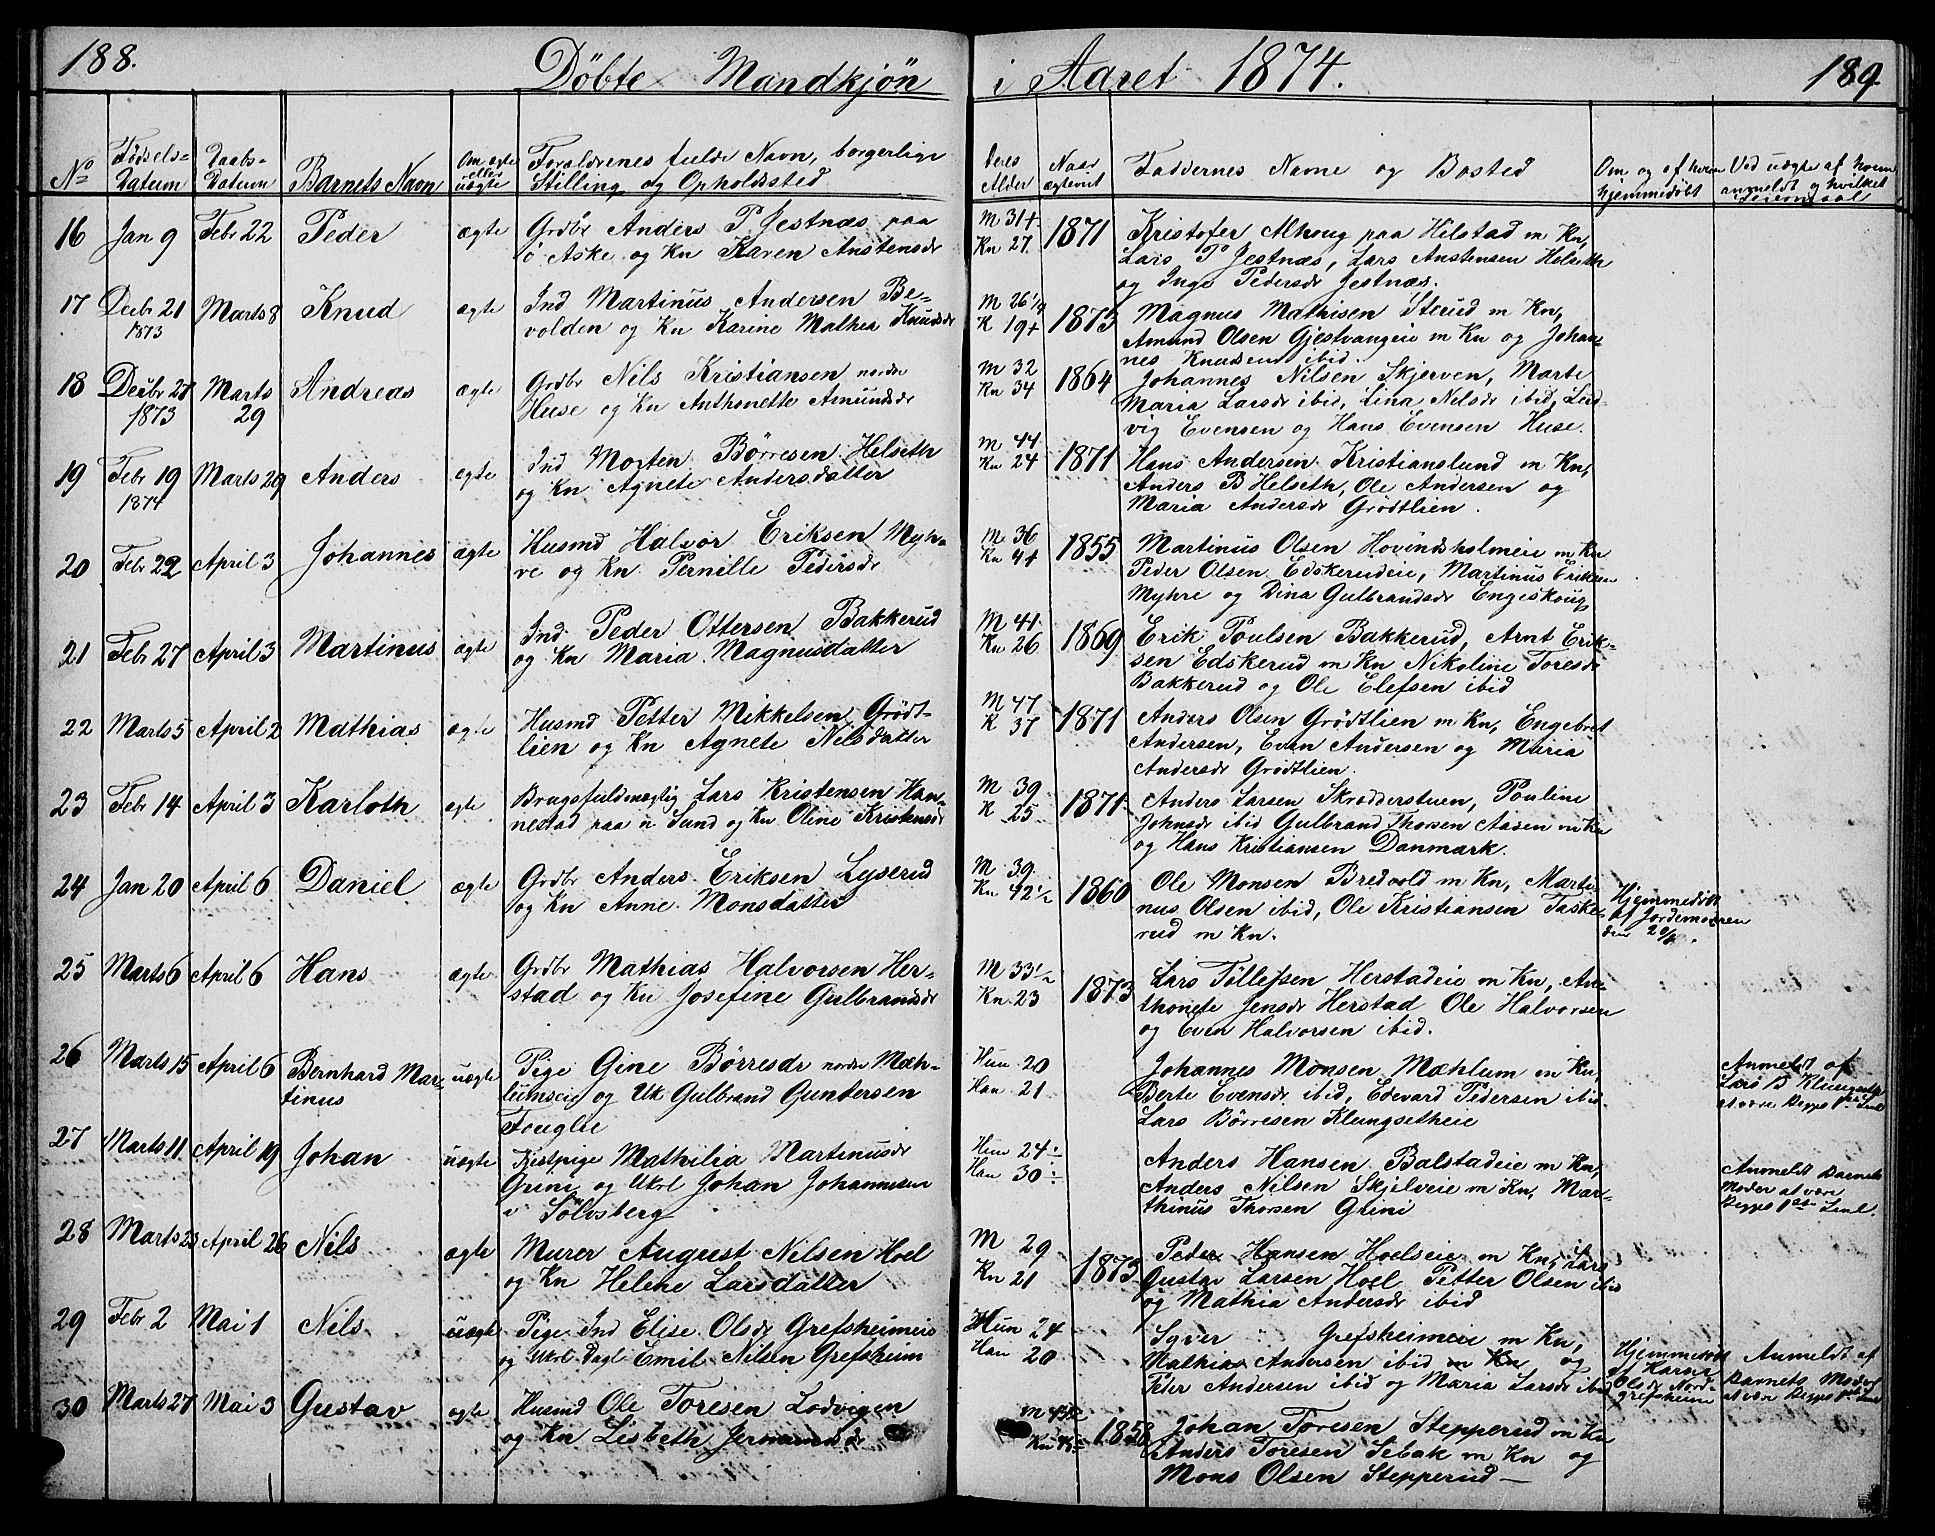 188.
Döbte Mandkjön
i Aaret 1874.
189
No
Fødsels-
Datum
Daabs-
Datum
Barnets Navn
Om ægte
eller
uægte
Forældrenes fulde Navn, borgerlige
Stilling og Opholdssted
Deres
Alder
Naar
ægteviet
Faddernes Navne og Bosted
Om og af hvem
hjemmedøbt
Ved uægte af hvem
anmeldt og hvilket
Leiermaal
16 Jan 9 Febr 22 Peder ægte Grdbr Anders P Jestnæs paa
ö Aske og Kn Karen Anstensdr
M 31+
Kn 27.
1871
Kristofer Alhoug paa Hilstad m Kn,
Lars P Jestnæs, Lars Anstensen Helseth
og Inge Pedersdr Jestnæs.
17 Decbr 21
1873
Marts 8 Knud ægte Ind Martinus Andersen Be-
volden og Kn Karine Mathea Knudsdr
M 26 1/4
K 19+
1873
Magnus Mathisen Sterud m Kn,
Amund Olsen Gjestvangeie m Kn og Johan-
nes Knudsen ibid.
18 Decbr 27
1873
Marts
29
Andreas ægte Grdbr Nils Kristiansen nordre
Huse og Kn Anthonette Amundsdr
M 32
Kn 34
1864
Johannes Nilsen Skjerven, Marte
Maria Larsdr ibid, Lina Nilsdr ibid, Lud-
vig Evensen og Hans Evensen Huse.
19 Febr 19
1874
Marts 29 Anders ægte Ind Morten Börresen Helseth
og Kn Agnete Andersdatter
M 44
Kn 24
1871
Hans Andersen Kristianslund m Kn,
Anders B Helseth, Ole Andersen og
Maria Andersdr Grödtlien.
20 Febr 22 April 3 Johannes ægte Husmd Halvor Eriksen Myh-
re og Kn Pernille Pedersdr
M. 36
Kn 4+
1855
Martinus Olsen Hovindsholmeie m Kn
Peder Olsen Edskerudeie, Martinus Eriksen
Myhre og Dina Gulbrandsdr Engeskoug
21 Febr 27 April 3 Martinus ægte Ind. Peder Ottersen Bakkerud
og Kn Maria Magnusdatter
M 41.
Kn 26
1869
Erik Poulsen Bakkerud, Arnt Erik-
sen Edskerud m Kn Nikoline Toresdr
Bakkerud og Ole Elefsen ibid
22 Marts 5 April 2 Mathias ægte Husmd Petter Mikkelsen Grödt-
lien og Kn Agnete Nilsdatter
M 47
K 37
1871
Anders Olsen Grödtlien m Kn, Engebret
Andersen, Even Andersen og Maria
Andersdr Grödtlien.
23 Febr 14 April 3 Karloth egte Brugsfuldmægtig Lars Kristensen Han-
nestad paa n Sund og Kn Oline Kristensdr
M 39
K 25
1871
Anders Larsen Skrædderstuen, Pouline
Johnsdr ibid Gulbrand Thorsen Aasen m Kn
og Hans Kristiansen Danmark.
24 Jan 20 April 6 Daniel ægte Grdbr Anders Eriksen Lyserud
og Kn Anne Monsdatter
M 39.
Kn 42 1/2
1860
Ole Monsen Bredvold m Kn, Marti-
nus Olsen ibid, Ole Kristiansen Taske-
rud m Kn.
Hjemmedöbt
af Jordemoderen
den 29/1.
25 Marts 6 April 6 Hans ægte Grdbr Mathias Halvorsen Her-
stad og Kn Josefine Gulbrandsdr
M 33 1/2
Kn 23
1873
Lars Tollefsen Herstadeie m Kn, An-
thonete Jensdr Herstad Ole Halvorsen
og Even Halvorsen ibid.
26 Marts 15 April 6 Bernhard Mar-
tinus
uægte Pige Gine Börresdr nordre Mæh-
lumseie og Uk Gulbrand Gundersen
Fouglie
Hun 20
Han 21
Johannes Monsen Mæhlum m Kn,
Berte Evensdr ibid, Edevard Pedersen ibid
Lars Börresen Klungsetheie
Anmeldt af
Lars B Klungseth
at være Begges 1ste Leml
27 Marts 11 April 19 Johan uægte Mathilia Martinusdr
Grini og Ukrl Johan Johannesen
i Sölvsberg
Hun 24
Han 30
Anders Hansen Balstadeie m Kn,
Anders Nilsen Skjelveie m Kn, Mar-
thinus Thorsen Grini
Anmeldt Barnets
Moder at være
Begges 1ste Leml.
28 Marts 23 April 26 Nils ægte Murer August Nilsen Hoel
og Kn Helene Larsdatter
M 29
Kn 21
1873
Peder Hansen Hoelseie m Kn, Lars
Gustav Larsen Hoel, Petter Olsen ibid
og Mathia Andersdr ibid
29 Febr 2 Mai 1 Nils. uægte Pige Ind Elise Olsdr Grefsheimeie
og Ukrl Dagl Emil Nilsen Grefsheim
Hun 24
Han 20
Syver " Grefsheimeie m Kn,
Mathias Andersen ibid m Kn og
Peter Andersen ibid og Maria Larsdr ibid
Hjemmedöbt
af Karen
Olsdr Nord-
grefsheim
Anmeldt af
Barnets Moder
at være Begges 1ste Leml
30 Marts 27 Mai 3 Gustav egte Husmd Ole Toresen Lodvigen
og Kn Lisbeth
M 45 1/2
Kn 45
1858
Johan Toresen Stepperud m Kn
Anders Toresen Sebak m Kn og
Mons Olsen Stepperud —